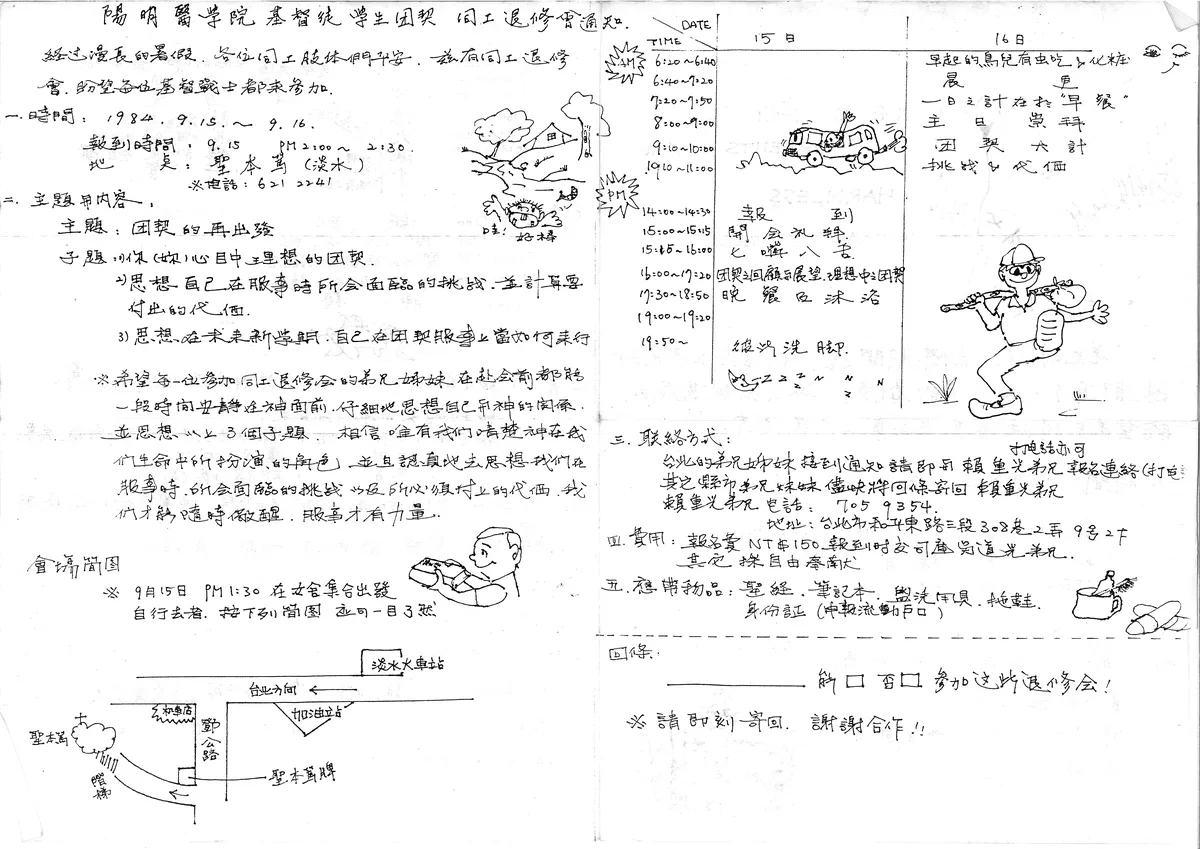 陽明醫學院基督徒學生团契 同工退修會通知.
經过漫長的暑假. 各位同工肢体們平安. 茲有同工退修
會. 盼望每位基督戰士都來参加.
一.時間: 1984. 9.15. ~ 9.16.
報到時間: 9.15 PM 2:00 ~ 2:30.
地 点: 聖本篤 (淡水)
※电話: 621 2241
二. 主題与内容:
主題: 团契的再出發
子題:1)你(妳)心目中理想的团契.
2)思想自己在服事時所会面臨的挑战. 並計算要
付出的代価.
3)思想在未來新學期. 自己在团契服事上當如何來行
※希望每一位参加同工退修会的弟兄姊妹. 在赴会前都能
一段時間安靜在神面前. 仔細地思想自己与神的関係.
並思想以上3個子題. 相信唯有我們清楚神在我
們生命中所扮演的角色. 並且認真地去思想我們在
服事時. 所会面臨的挑战以及所必須付上的代価. 我
們才能隨時儆醒. 服事才有力量.
哇! 好棒
會場簡图
※ 9月15日 PM 1:30 在女舍集合出發
自行去者. 按下列簡图 並可一目了然
淡水火車站
台北方向 ←
机車店
鄧公路
加油站
聖本篤
階梯
聖本篤牌
DATE
TIME
15日
16日
AM
6:20~6:40 早起的鳥兒有虫吃&化粧
6:40~7:20 晨 更
7:20~7:50 一日之計在於"早餐"
8:00~9:00 主 日 崇 拜
9:10~10:00 团 契 大 計
10:10~11:00 挑战&代価
PM
14:00~14:30 報 到
15:00~15:15 開会礼拜.
15:15~16:00 七嘴八舌
16:00~17:20 团契之回顧与展望.理想中之团契
17:30~18:50 晚餐&沐浴
19:00~19:20
19:50~ 彼此洗脚.
Z Z Z N N N
三. 联絡方式:
打电話亦可
台北的弟兄姊妹接到通知請即与賴重光弟兄報名連絡(打电
其它縣市弟兄姊妹儘快將回條寄回賴重光弟兄
賴重光弟兄 电話: 705 9354.
地址: 台北市和平東路三段308巷2弄9号2F
四. 費用: 報名費 NT$150. 報到時交司庫吳道光弟兄.
其它採自由奉献
五. 應帶物品: 聖経. 筆記本. 盥洗用具. 拖鞋.
身份証 (申報流動戶口)
回條:
能□ 否□ 参加這次退修会!
※ 請即刻寄回. 謝謝合作!!